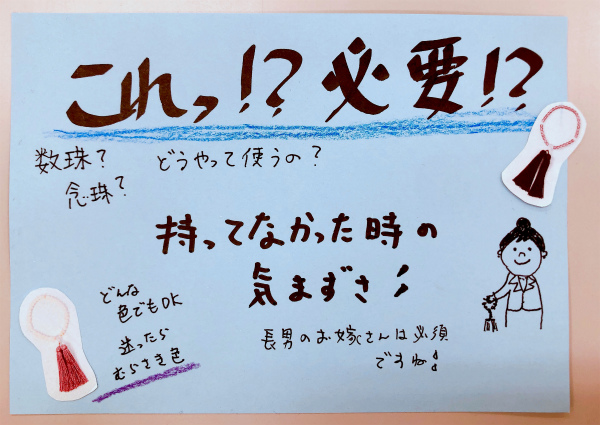 これっ!? 必要!?
数珠? どうやって使うの?
念珠?
持ってなかった時の
気まずさ!
どんな
色でもOK
迷ったら
むらさき色
長男のお嫁さんは必須
ですね!